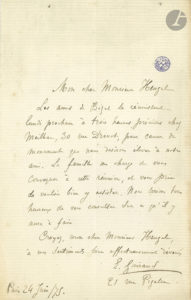 Mon cher Monsieur Heugel
Les amis de Bizet se réunissent
lundi prochain à trois heures précises chez
30 rue Drouot, pour causer du
monument que nous désirons élever à notre
ami. La famille me charge de vous
convoquer à cette réunion, et vous prier
de vouloir bien y assister. Nous serons bien
heureux de vous consulter sur ce qu'il y
aura à faire.
Croyez, mon cher Monsieur Heugel,
à mes sentiments bien affectueusement dévoués
E. Guiraud
21 rue Pigalle
Paris 24 Juin /75.
ADER